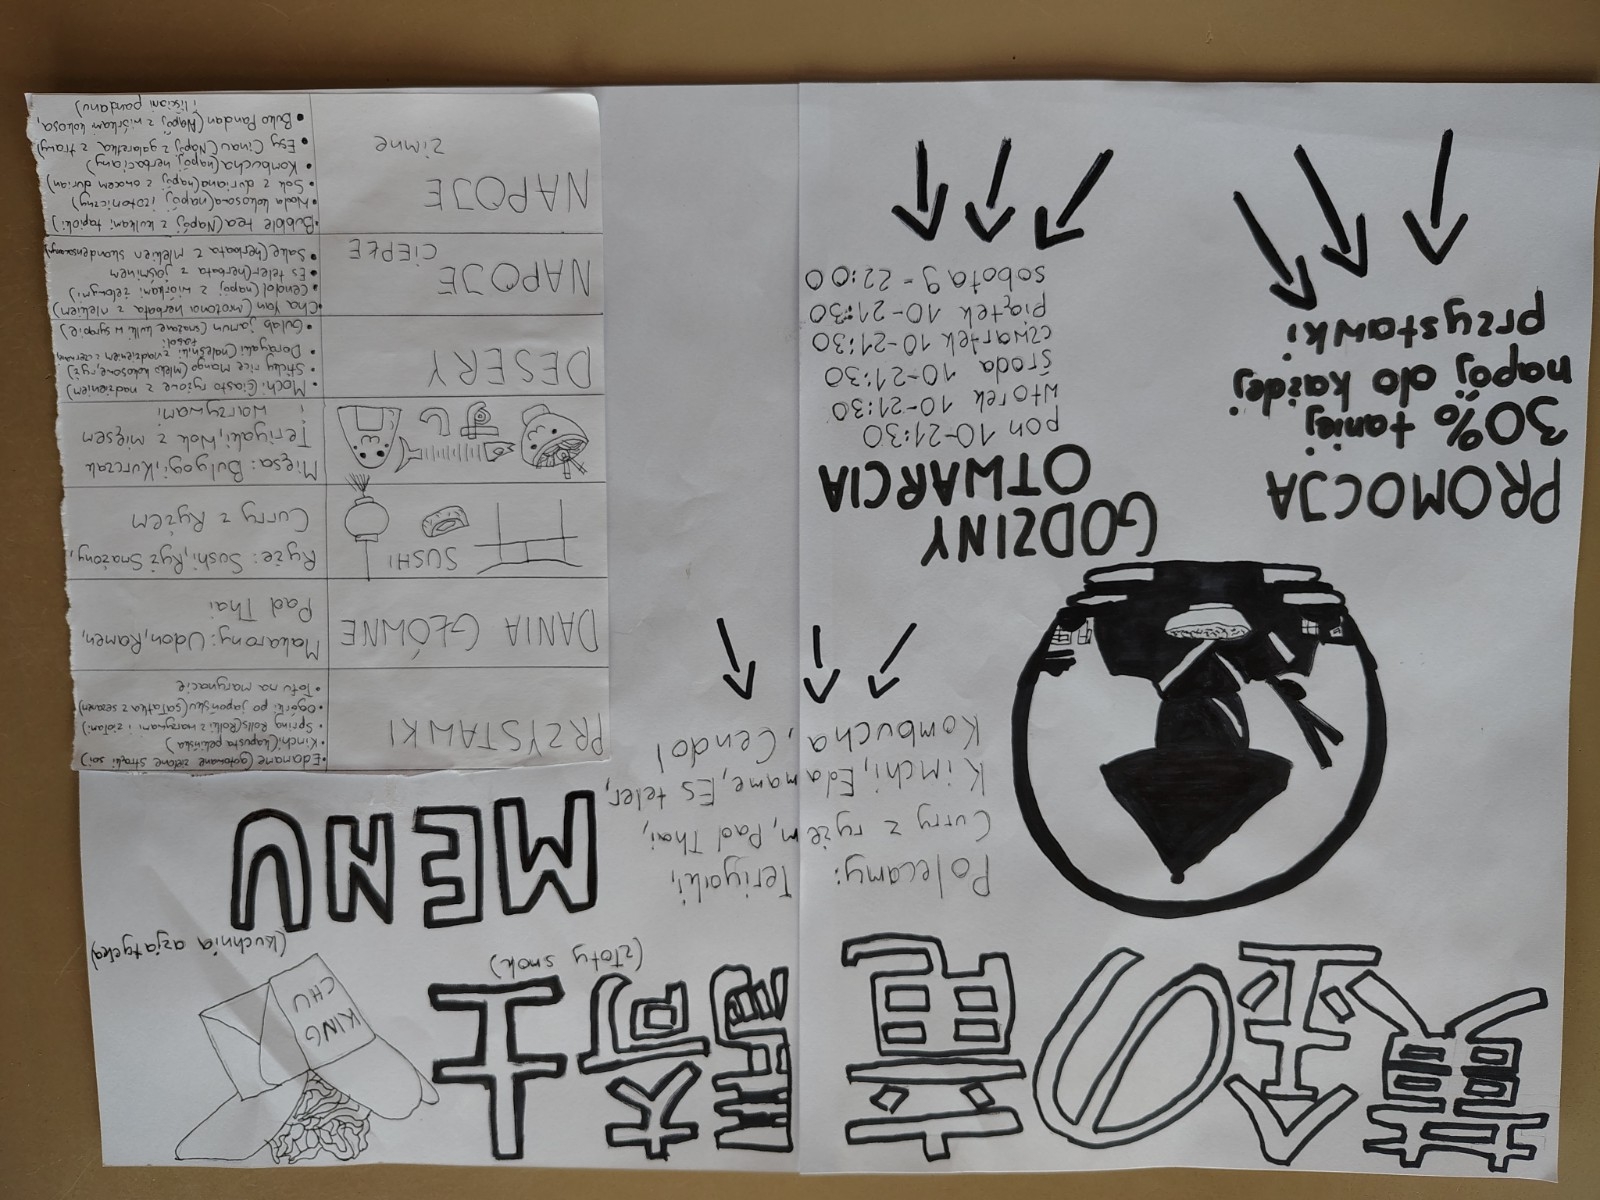 金の
(złoty smok)
KING
CHU
(kuchnia azjatycka)
Polecamy: Teriyaki,
Curry z ryżem, Pad Thai,
Kimchi, Edamame, Es teler,
Kombucha, Cendol
PROMOCJA
30% taniej
napój do każdej
przystawki
GODZINY
OTWARCIA
pon 10-21:30
wtorek 10-21:30
środa 10-21:30
czwartek 10-21:30
piątek 10-21:30
sobota 9-22:00
MENU
PRZYSTAWKI
•Edamame (gotowane zielone strąki soi)
•Kimchi (kapusta pekińska)
•Spring Rolls (Rolki z warzywami i ziołami)
•Ogórki po japońsku (sałatka z sezamem)
•Tofu na marynacie
DANIA GŁÓWNE
Makarony: Udon, Ramen,
Pad Thai
SUSHI
Ryże: Sushi, Ryż Smażony,
Curry z Ryżem
Mięsa: Bulgogi, Kurczak
Teriyaki, Wok z mięsem
i warzywami
DESERY
•Mochi (Ciasto ryżowe z nadzieniem)
•Sticky rice Mango (Mleko kokosowe, ryż)
•Dorayaki (naleśniki z nadzieniem z czerwonej fasoli
•Gulab jamun (smażone kulki w syropie)
NAPOJE
CIEPŁE
•Cha Yan (mrożona herbata z mlekiem)
•Cendol (napój z wiórkami żelowymi)
•Es teler (herbata z jaśminem
•Sake (herbata z mlekiem skondensowanym)
NAPOJE
zimne
•Bubble tea (Napój z kulkami tapioki)
•Woda kokosowa (napój izotoniczny)
•Sok z duriana (napój z owocem durian)
•Kombucha (napój herbaciany)
•Esy Cinau (Napój z galaretką z trawy)
•Buko Pandan (Napój z wiórkami kokosa,
i liściami pandanu)